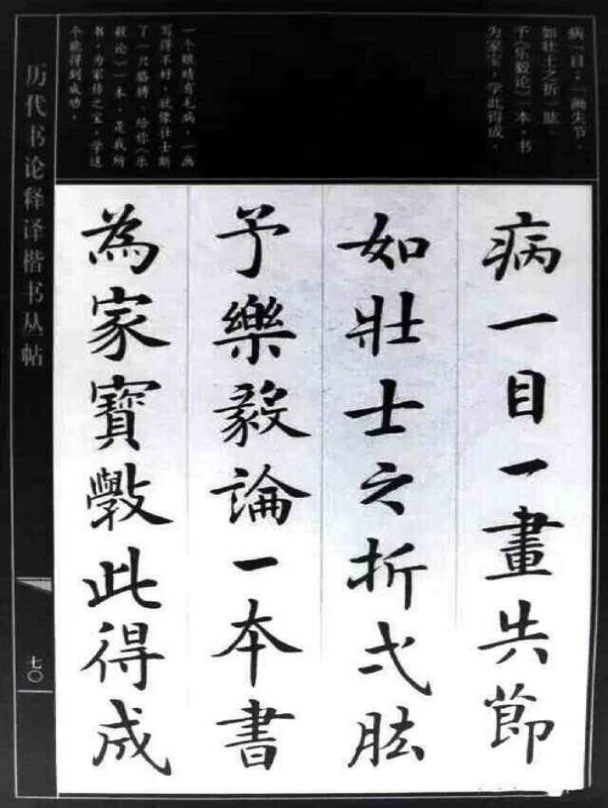 病一目；一画失节，
如壮士之折一肱。
予《乐毅论》一本，书
为家宝，学此得成。
一个眼睛有毛病，一画
写得不好，就像壮士断
了一只胳膊。给你《乐
毅论》一本，是我所
书，为家传之宝，学这
个能得到成功。
病一目一畫失節
如壯士之折弌肱
予樂毅論一本書
為家寶斆此得成
历代书论释译楷书丛帖
七〇